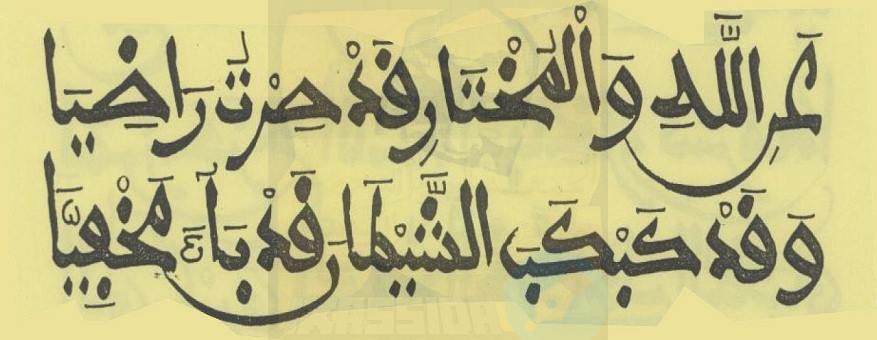 عَنِ اللَّهِ وَالْمُخْتَارِ قَدْ صِرْتُ رَاضِيَا
وَقَدْ كَبْكَبَ الشَّيْطَانَ قَدْ بَاءَ مَخْفِيَّا
KASSIDA